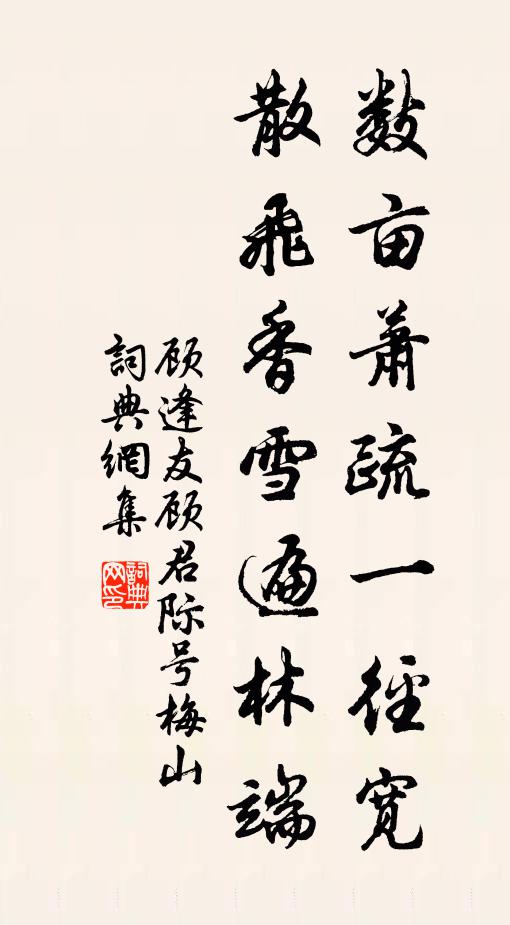 数亩萧疏一径宽
散飞香雪遍林端
顾逢友顾君际号梅山
詞典網集
詞典网印